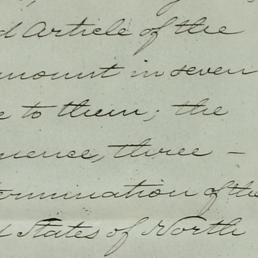 d Article of the
mount in seven
e to them; the
uence, three -
termination of the
d States of North